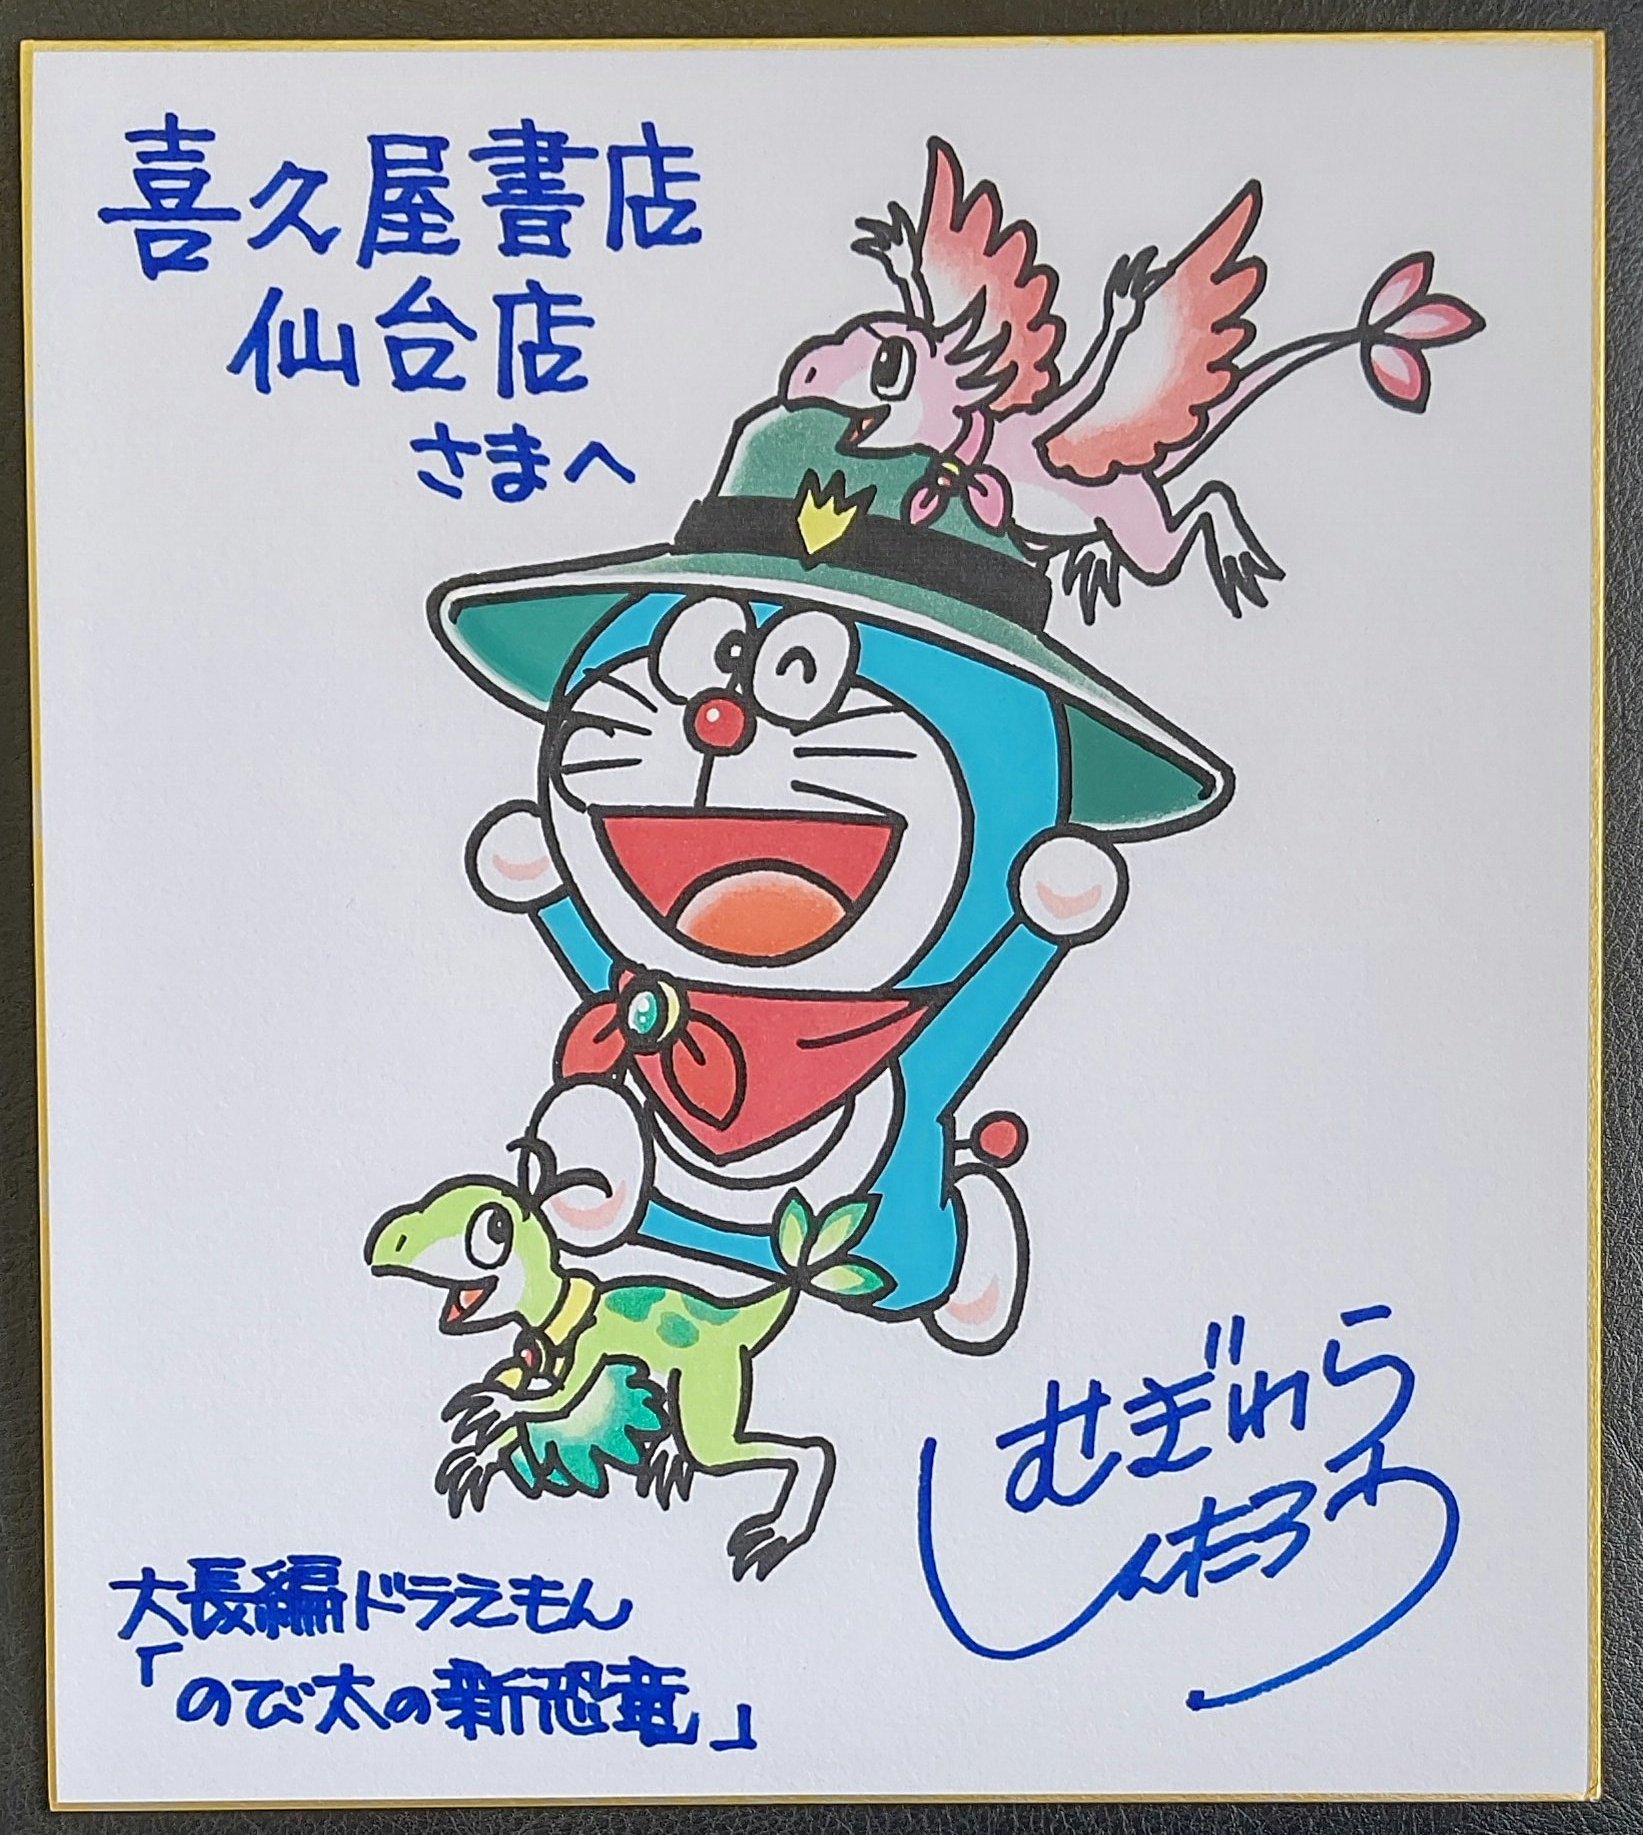 喜久屋書店
仙台店
さまへ
むぎわら
しんたろう
大長編ドラえもん
「のび太の新恐竜」